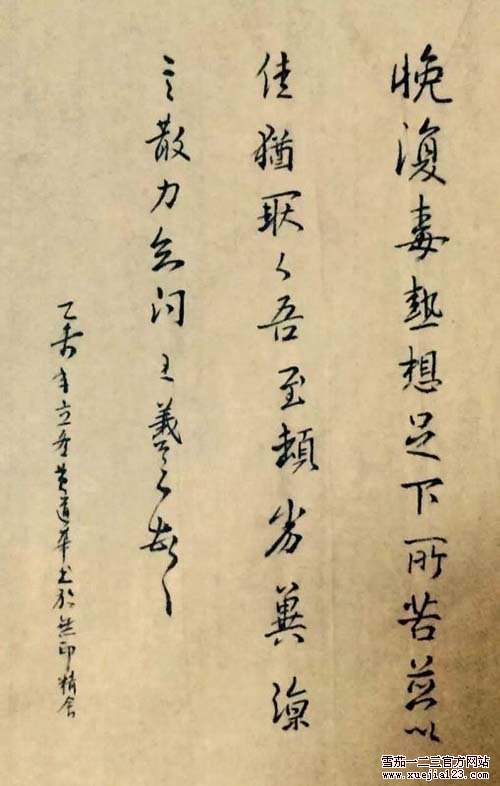 晚復毒熱想足下所苦並以
佳猶耿々吾至頓劣冀涼
言散力知问王羲之
乙未年立 黄道華书於無印精舍
雪茄一二三官方网站
www.xuejie123.com